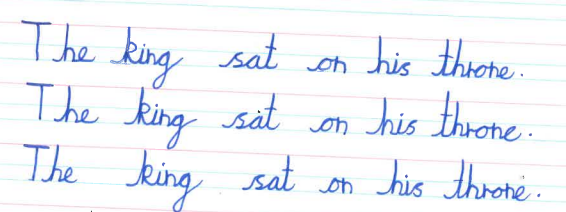 The king sat on his throne.
The king sat on his throne.
The king sat on his throne.